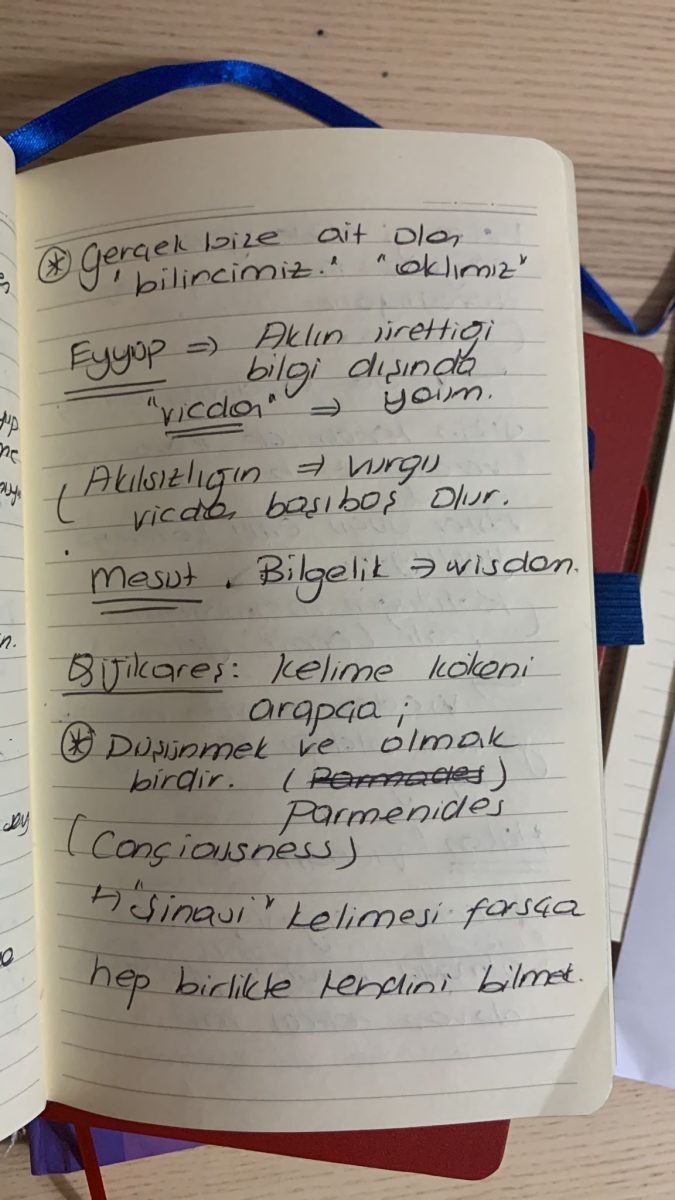 * Gerçek bize ait olan
"bilincimiz." "aklımız"
Eyyüp => Aklın ürettiği
bilgi dışında
"vicdan" => yoım.
( Akılsızlığın => vurgu
vicdan başıboş olur.
Mesut . Bilgelik => wisdom.
: kelime kökeni
arapça ;
* Düşünmek ve olmak
birdir. (Parmades)
Parmenides
(Conçiousness)
↳ "Şinavi" kelimesi farsça
hep birlikte kendini bilmek.